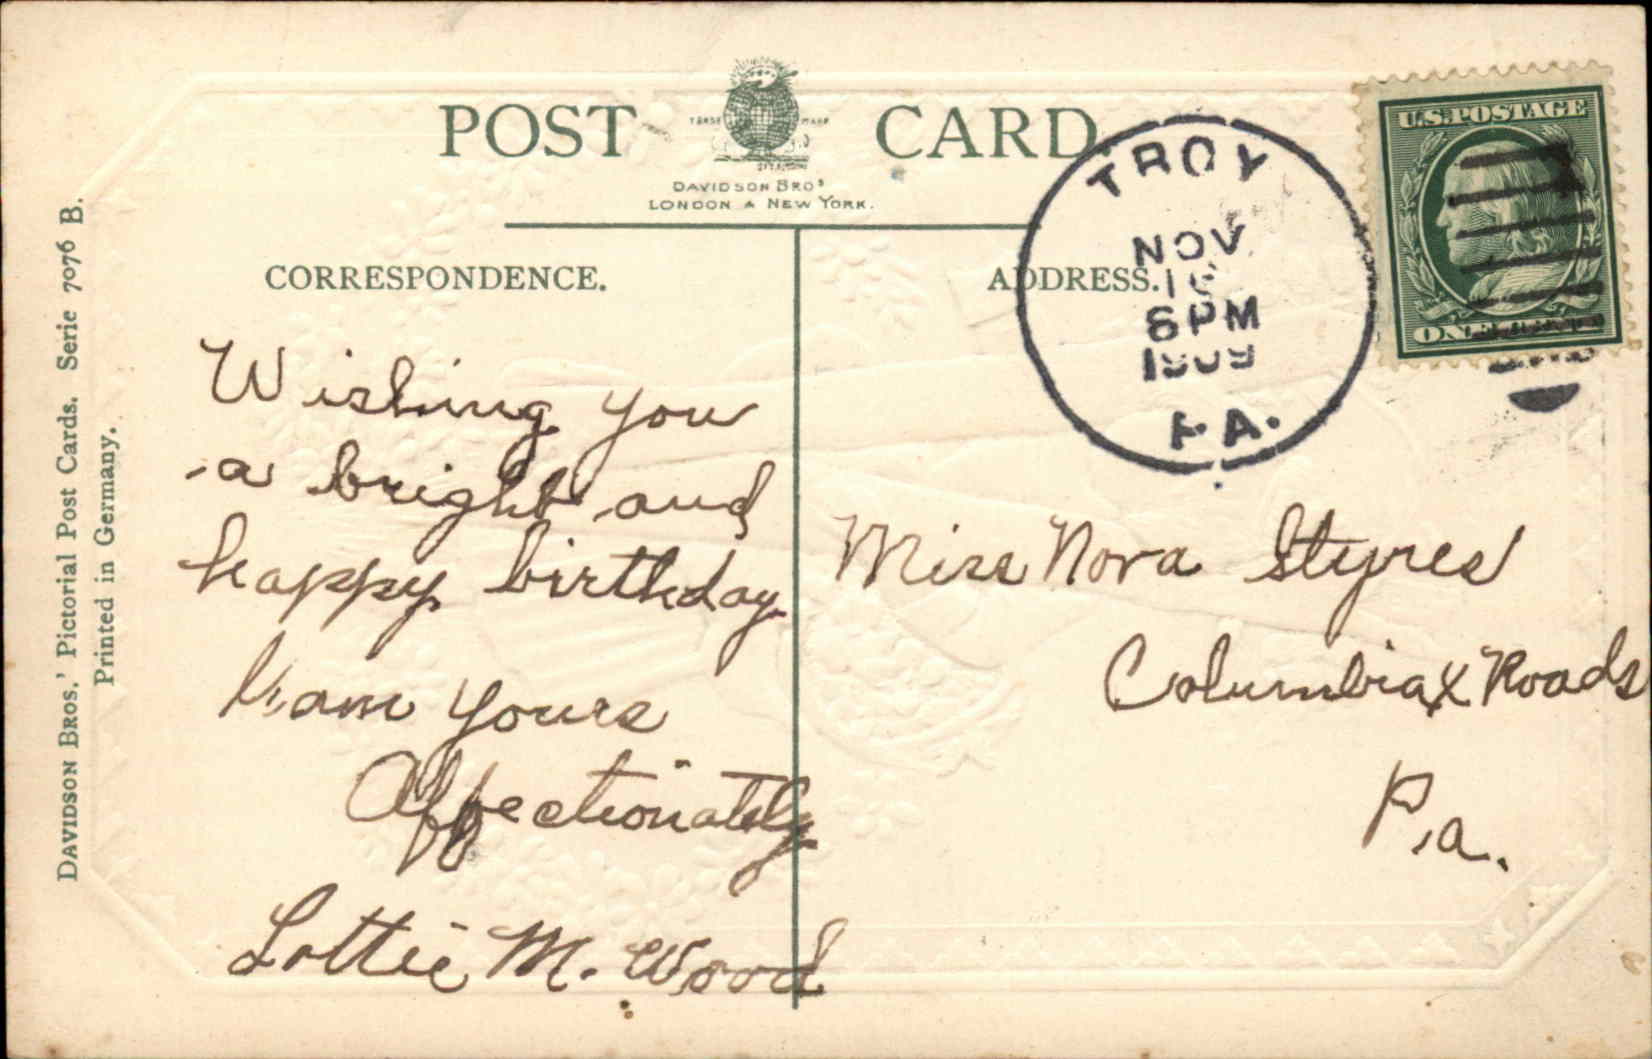 POST CARD
TRADE MARK
DAVIDSON BROS
LONDON & NEW YORK.
CORRESPONDENCE.
ADDRESS.
U.S.POSTAGE
ONE
TROY
NOV
6PM
1909
PA.
Wishing you
a bright and
happy birthday
I am yours
Affectionately
Lottie M. Wood
Miss Nora Styres
Columbia X Roads
Pa.
DAVIDSON BROS.' Pictorial Post Cards. Serie 7076 B.
Printed in Germany.